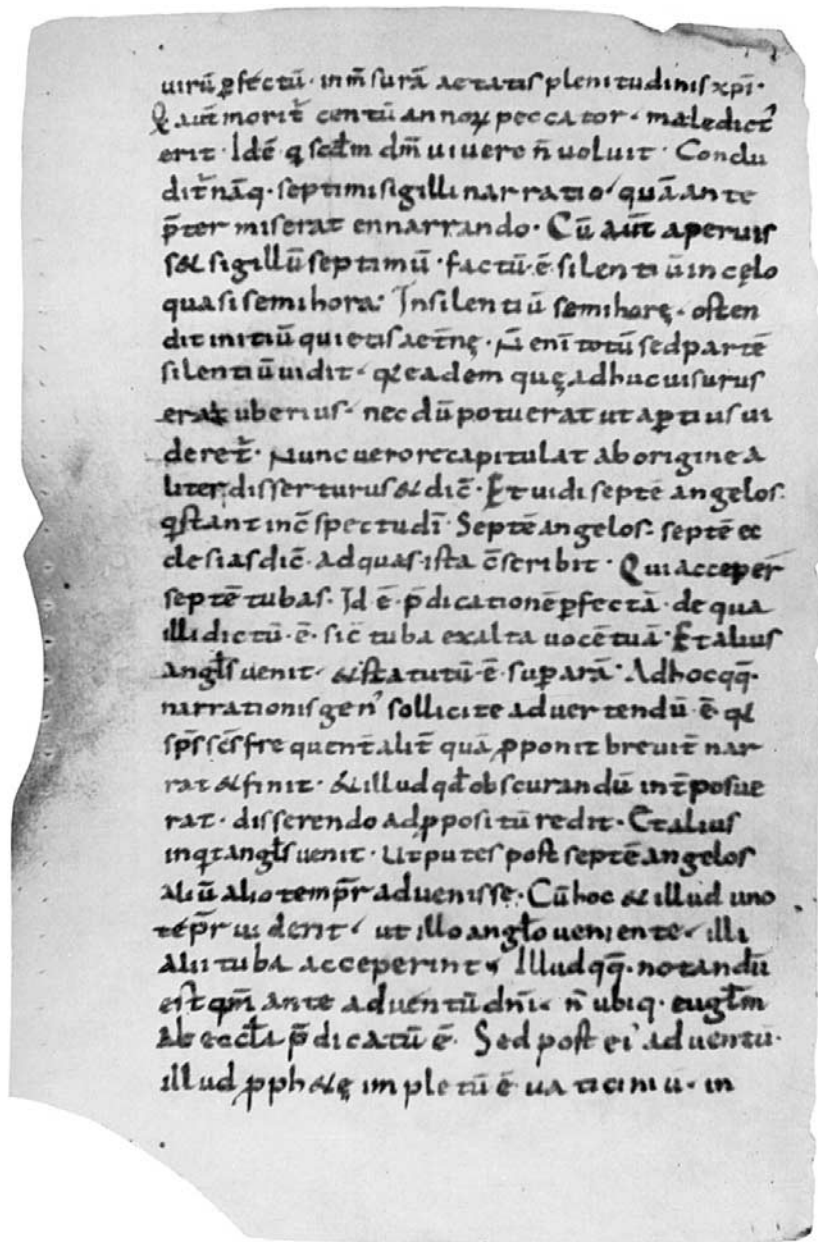 uirū ꝑfectū · in m̄surā aetatis plenitudinis xp̄i ·
Q aut̄ morit̄ centū annoꝝ peccator · maledict᷒
erit · Idē q sedm̄ dm̄ uiuere n̄ uoluit · Conclu
dit̄ nāq · septimi sigilli narratio quā ante
p̄termiserat ennarrando · Cū aūt aperuis
s& sigillū septimū · factū · ē silentiū in cęlo
quasi semihora: In silentiū semihorę · osten
dit initiū quietis aet̄nę · N̄ enī totū sed partē
silentiū uidit · q& eadem quę adhuc uisurus
erat uberius · nec dū potuerat ut aꝑtius ui
deret̄ · Nunc uero recapitulat ab origine a
liter disserturus & dic̄ · Et uidi septē angelos ·
qstant in c̄spectu dī · Septē angelos · septē ec
clesias dic̄ · ad quas ista c̄scribit · Qui acceper̄
septē tubas · Id ē · p̄dicationē ꝑfectā · de qua
illi dictū · ē · sic̄ tuba exalta uocē tuā · Et alius
angl̄s uenit · & statutū · ē · suꝑ arā · Ad hoc qq̄ ·
narrationis gen᷒ sollicite aduertendū · ē · q&
sp̄s sc̄s frequent̄ alit̄ quā ꝓponit breuit̄ nar
rat & finit · & illud qd̄ obscurandū int̄posue
rat · disserendo ad ꝓpositū redit · Et alius
inqt angl̄s uenit · Ut putes post septē angelos
aliū alio temp̄r aduenisse · Cū hoc & illud uno
tēp̄r uiderit · ut illo angl̄o ueniente · illi
alii tuba acceperint · Illud qq̄ · notandū
est qm̄ ante aduentū dn̄i · n̄ ubiq · eugl̄m
ab eccl̄a p̄dicatū ē · Sed post ei᷒ aduentū ·
illud ꝓph&ę impletū ē uaticiniū · in